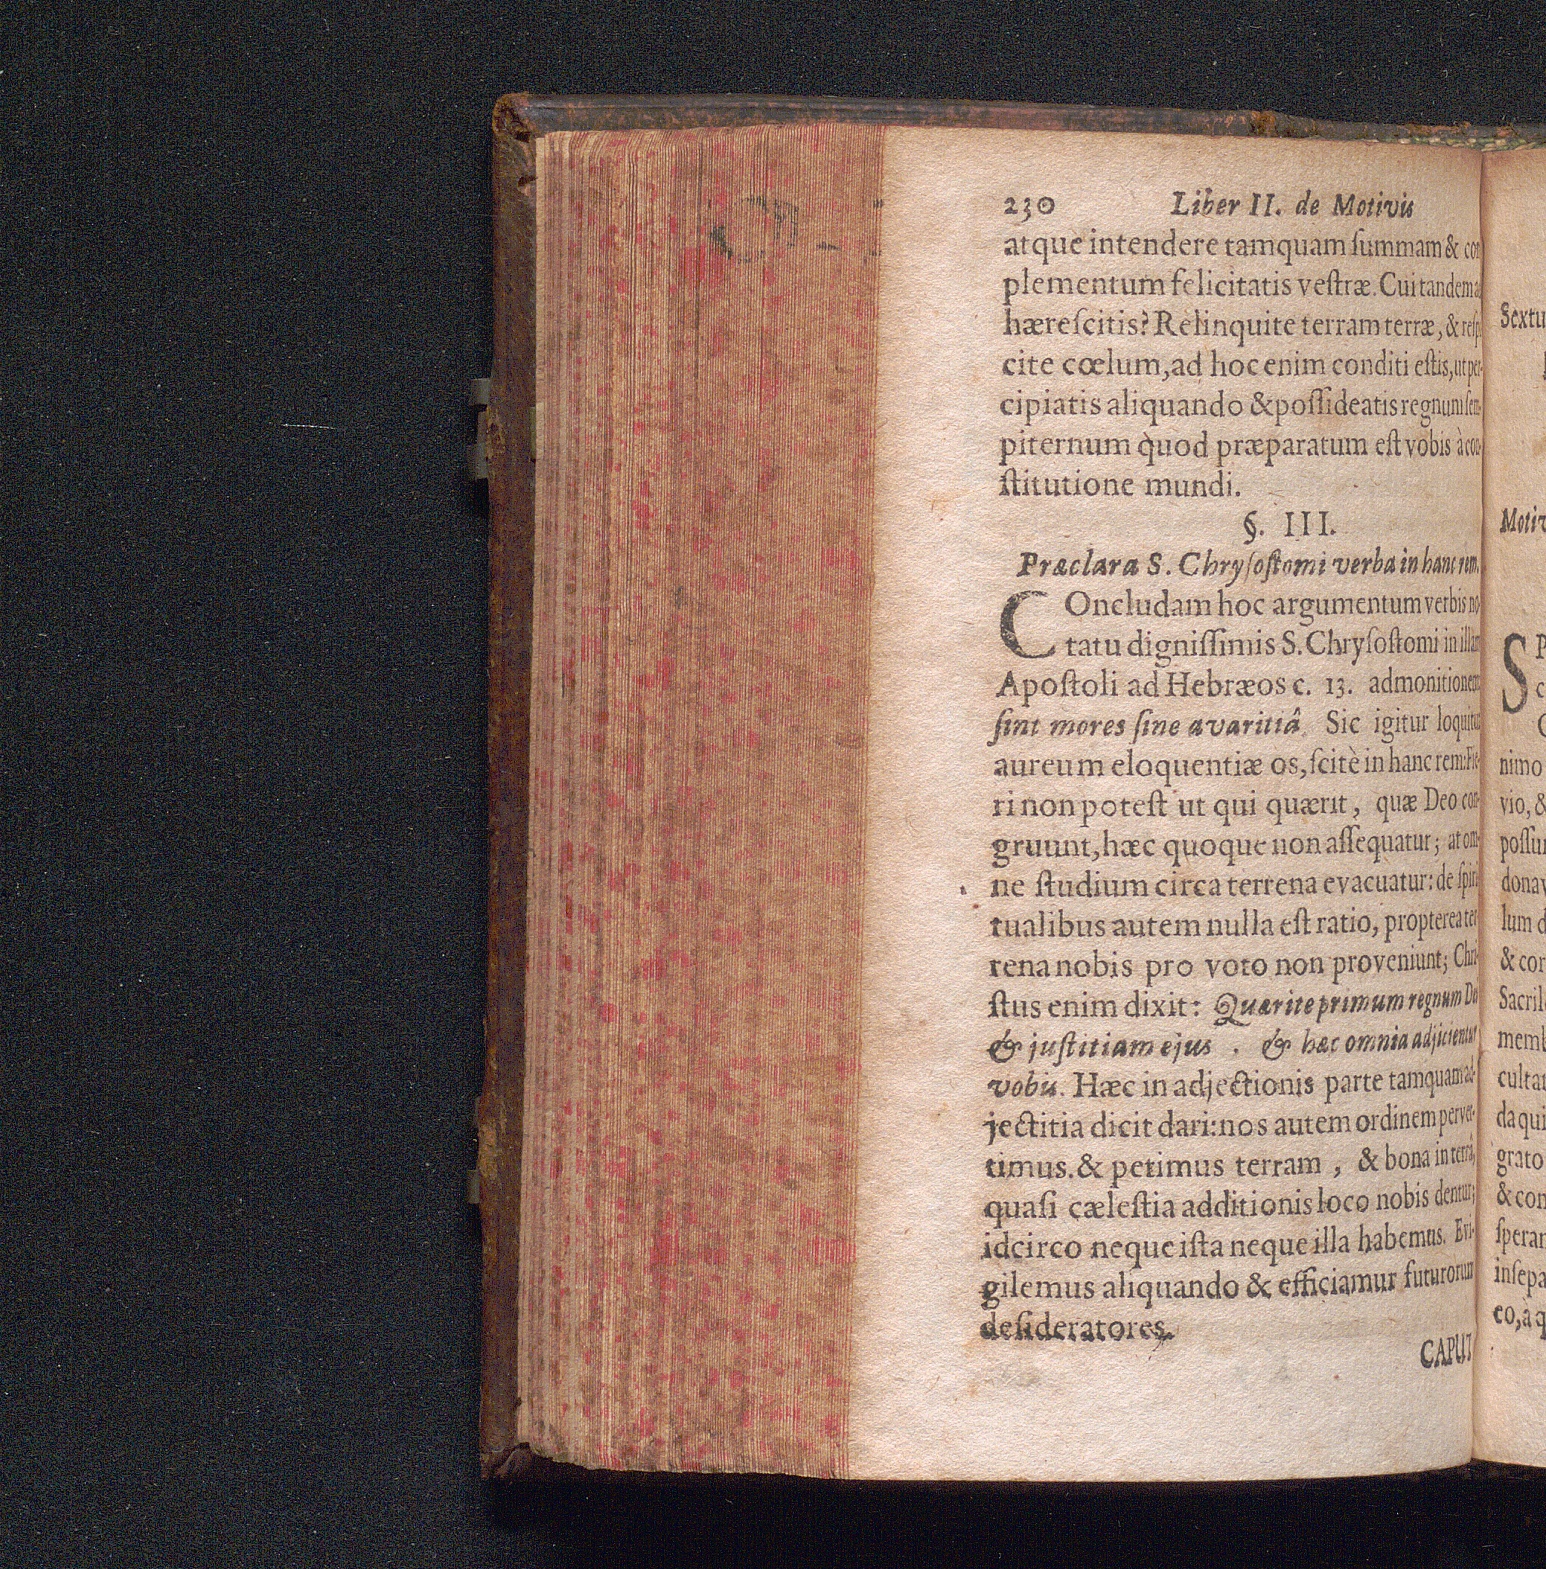 230 Liber II. de Motivis
atque intendere tamquam ſummam & con
plementum felicitatis veſtræ. Cui tandem a
hæreſcitis? Relinquite terram terræ, & reſp
cite cœlum, ad hoc enim conditi eſtis, ut per-
cipiatis aliquando & poſſideatis regnum ſem-
piternum quod præparatum eſt vobis à con-
ſtitutione mundi.
§. III.
Præclara S. Chryſoſtomi verba in hanc rem.
COncludam hoc argumentum verbis no-
tatu digniſſimis S. Chryſoſtomi in illam
Apoſtoli ad Hebræos c. 13. admonitionem
ſint mores ſine avaritiâ. Sic igitur loquitur
aureum eloquentiæ os, ſcitè in hanc rem: Fie-
ri non poteſt ut qui quærit, quæ Deo con-
gruunt, hæc quoque non aſſequatur; at om-
ne ſtudium circa terrena evacuatur: de ſpiri
tualibus autem nulla eſt ratio, propterea ter
rena nobis pro voto non proveniunt; Chri-
ſtus enim dixit: Quærite primum regnum Dei
& juſtitiam ejus . & hæc omnia adjicientur
vobis. Hæc in adjectionis parte tamquam ad-
jectitia dicit dari: nos autem ordinem perver-
timus. & petimus terram , & bona in terrâ,
quaſi cæleſtia additionis loco nobis dentur;
idcirco neque iſta neque illa habemus. Evi-
gilemus aliquando & efficiamur futurorum
deſideratores.
CAPUT
Sextu
Motiv
S P
c
nimo
vio, &
poſſu
donav
lum d
& cor
Sacril
memb
cultat
da qui
grato
& con
ſperan
inſepa
co, à q